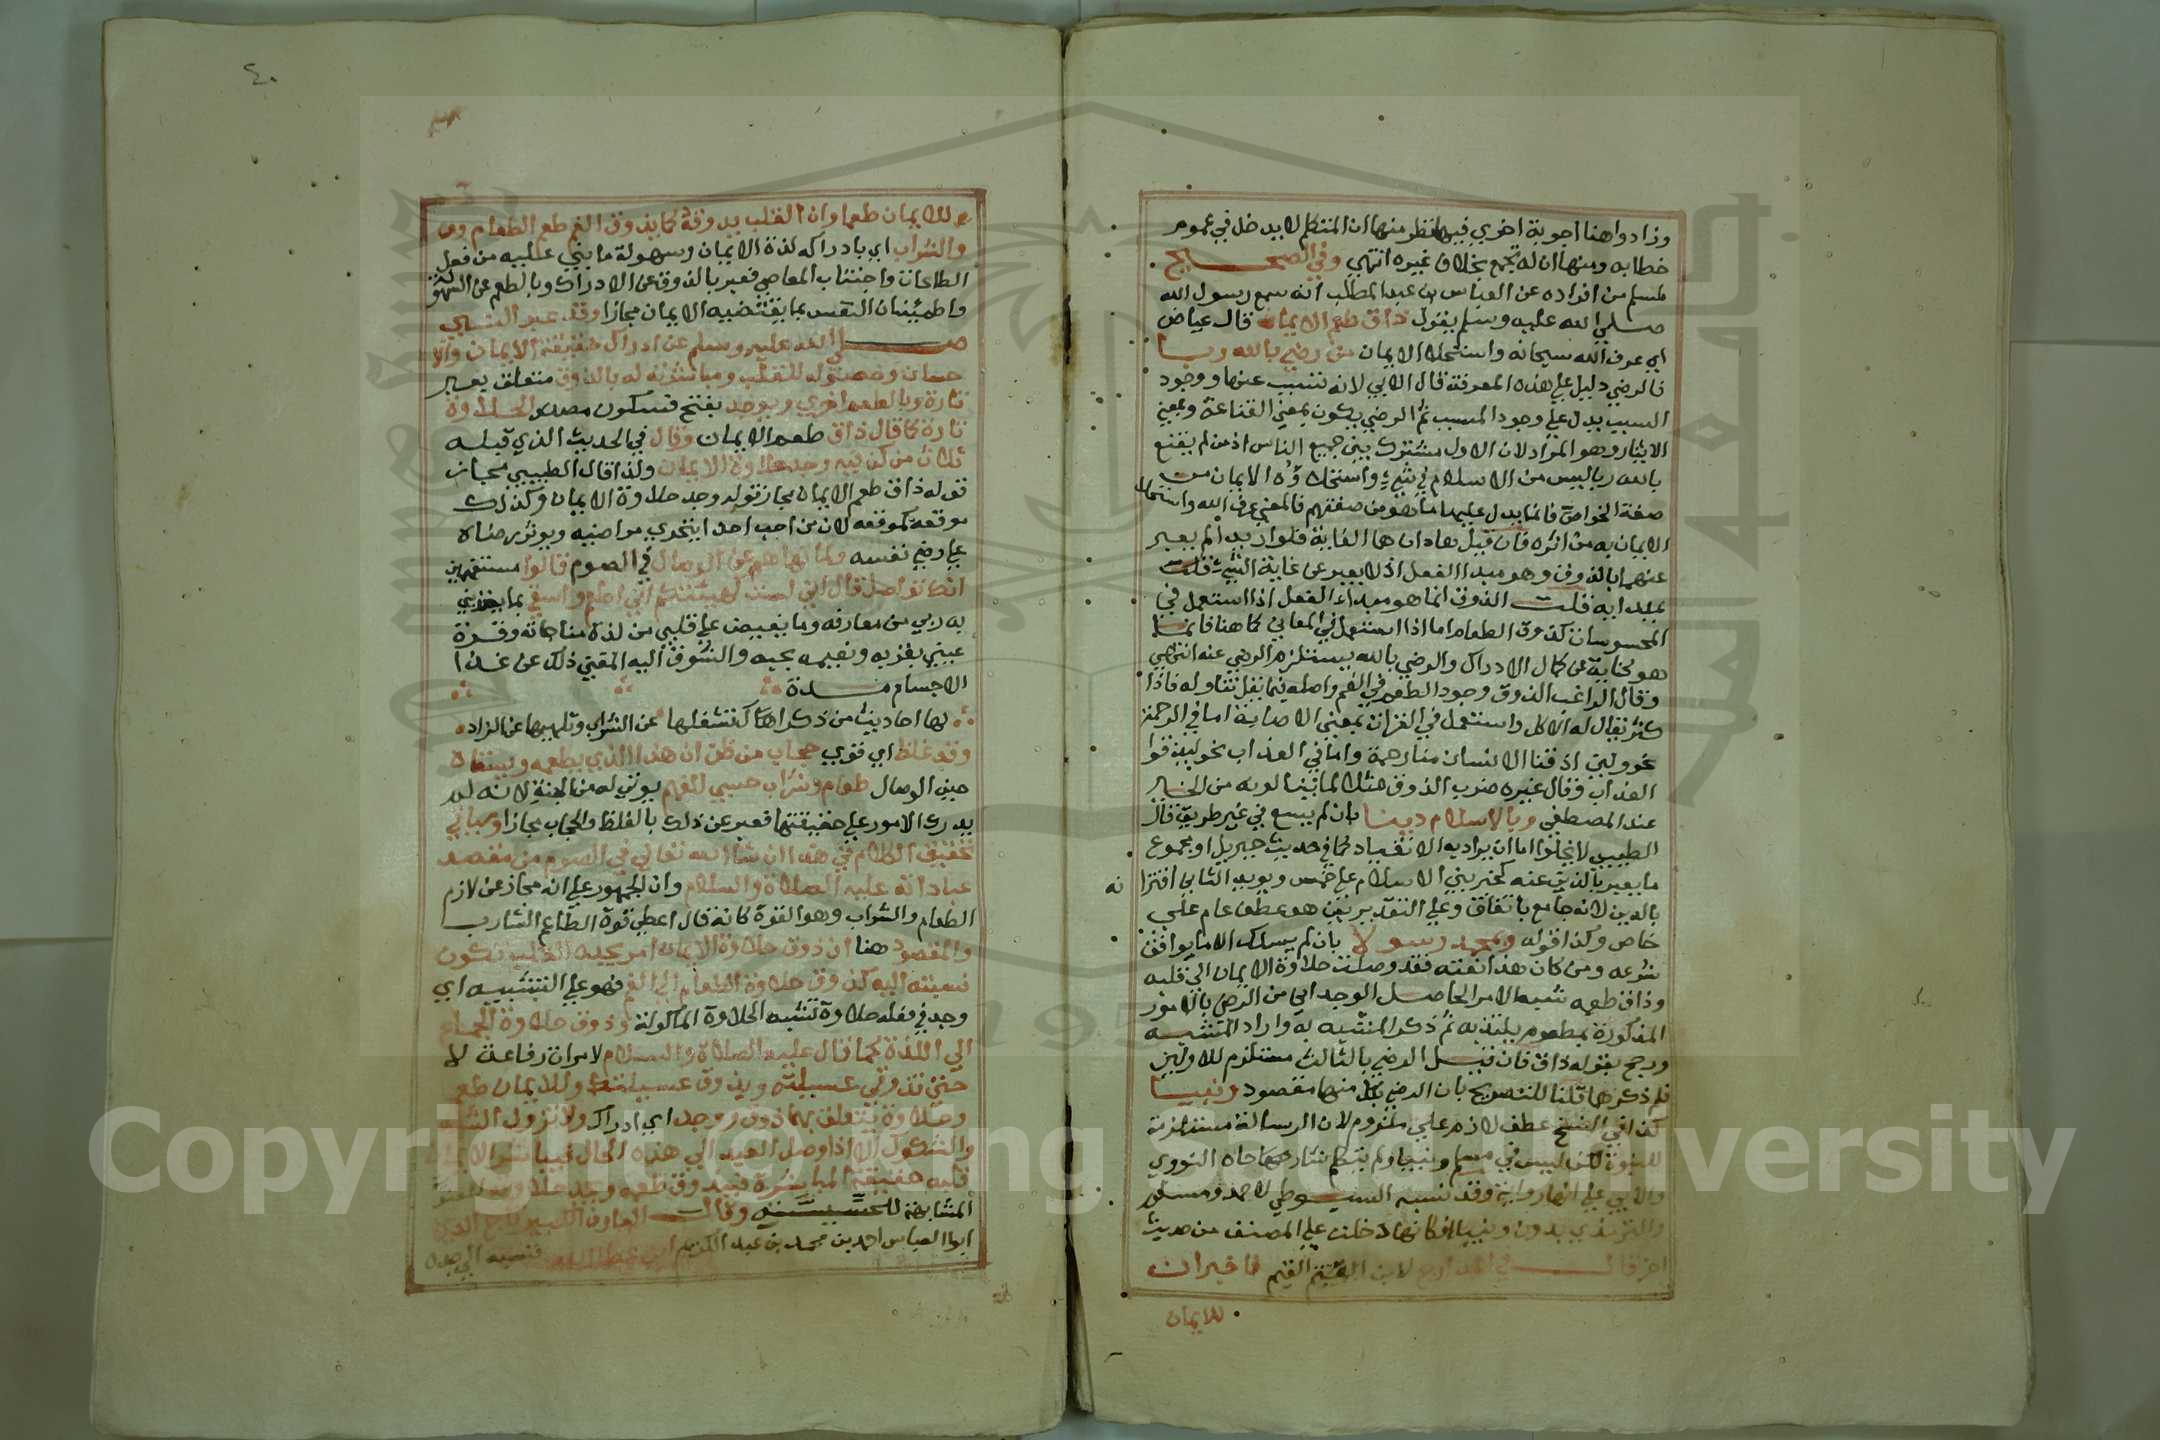 وزادوا هنا اجوبة اخري فيها نظر منها ان المتكلم لا يدخل في عموم
خطابه ومنها ان له تجمع بخلاف غيره انتهي وفي الصحيح
مسلم من افراده عن العباس بن عبد المطلب انه سمع رسول الله
صلي الله عليه وسلم يقول ذاق طعم الايمان قال عياض
اي عرف الله سبحانه واستحلا الايمان من رضي بالله ربا
فالرضي دليل علي هذه المعرفة قال الابي لانه تسبب عنها ووجود
السبب يدل علي وجود المسبب ثم الرضي يكون بمعني القناعة وبمعني
الايثار وهو المراد لان الاول مشترك بين جميع الناس اذ من لم يقنع
بالله ربا ليس من الاسلام في شيء واستحلاؤه الايمان من
صفة الخواص فانما يدل عليها ما هو من صفتهم فالمعني عرف الله واستحلا
الايمان به من اثره فان قيل هاذان هما الغاية فلو اريد لم يعبر
عنهما بالذوق وهو مبدا الفعل اذ لا يعبر عن غاية الشيء
بمبدايه قلت الذوق انما هو مبداء الفعل اذا استعمل في
المحسوسات كذوق الطعام اما اذا استعمل في المعاني كما هنا فانما
هو كناية عن كمال الادراك والرضي بالله يستلزم الرضي عنه انتهي
وقال الراغب الذوق وجود الطعم في الفم واصله فيما يقل تناوله فاذا
كثر يقال له الاكل واستعمل في القران بمعني الاصابة اما في الرحمة
نحو ولين اذقنا الانسان منا رحمة واما في العذاب نحو ليذوقوا
العذاب وقال غيره ضرب الذوق مثلا لما ينالونه من الخير
عند المصطفي وبالاسلام دينا بان لم يسع في غير طريقه قال
الطيبي لا يخلو اما ان يراد به الانقياد كما في حديث جبريل او مجموع
ما يعبر بالدين عنه كخبر بني الاسلام علي خمس ويويد الثاني اقترا
نه
بالدين لانه جامع باتفاق وعلي التقديرين هو عطف عام علي
خاص وكذا قوله وبمحمد رسولا بان لم يسلك الا ما يوافق
شرعه ومن كان هذا نعته فقد وصلت حلاوة الايمان الي قلبه
وذاق طعمه شبه الامر الحاصل الوجداني من الرضي بالامور
المذكورة بمطعوم يلتذ به ثم ذكر المشبه به واراد المشبه
ورجح بقوله ذاق فان قيل الرضي بالثالث مستلزم للاولين
فلم ذكرها قلنا للتصريح بان الرضي بكل منها مقصود ونبيا
كذا في النسخ عطف لازم علي ملزوم لان الرسالة مستلزمة
للنبوة لكن ليس في مسلم ونبيا ولم يتكلم شارحها النووي
والابي علي انها رواية وقد نسبه السيوطي لاحمد ومسلم
والترمذي بدون ونبيا فكانها دخلت علي المصنف من حديث
اخر قال في المدارج لابن القيم فاخبر ان
للايمان
٤٠
للايمان طعما وان القلب يذوقه كما يذوق الفم طعم الطعام
والشراب اي بادراكه لذة الايمان وسهولة ما ينبني عليه من فعل
الطاعات واجتناب المعاصي فعبر بالذوق عن الادراك وبالطعم عن السهولة
واطمئنان النفس بما يقتضيه الايمان مجازا وقد عبر النبي
صلي الله عليه وسلم عن ادراك حقيقة الايمان والا
حسان وحصوله للقلب ومباشرته له بالذوق متعلق بعبر
تارة وبالطعم اخري وبوجد بفتح فسكون مصدر الحلاوة
تارة كما قال ذاق طعم الايمان وقال في الحديث الذي قبله
ثلاث من كن فيه وجد حلاوة الايمان ولذا قال الطيبي مجاز
قوله ذاق طعم الايمان مجاز قوله وجد حلاوة الايمان وكذلك
موقعه كموقعه لان من احب احدا يتحري مراضيه ويوثر رضاه
علي رضي نفسه ولما نهاهم عن الوصال في الصوم قالوا مستفهمين
انك تواصل قال اني لست كهيئتكم اني اطعم واسقي بما يغذيني
به ربي من معارفه وما يفيض علي قلبي من لذة مناجاته وقرة
عيني بقربه ونعيمه بحبه والشوق اليه المغني ذلك عن غذا
الاجسام مدة
لها احاديث من ذكراك تشغلها عن الشراب وتلهيها عن الزاد
وقد غلظ اي قوي حجاب من ظن ان هذا الذي يطعمه ويسقاه
حين الوصال طعام وشراب حسي للفم يوتي له من الجنة لانه لم
يدرك الامور علي حقيقتها فعبر عن ذلك بالغلظ والحجاب مجازا وسياتي
تحقيق الكلام في هذا ان شا الله تعالي في الصوم من مقصد
عباداته عليه الصلاة والسلام وان الجمهور علي انه مجاز عن لازم
الطعام والشراب وهو القوة كانه قال اعطي قوة الطاعم الشارب
والمقصود هنا ان ذوق حلاوة الايمان امر يجده القلب تكون
نسبته اليه كذوق حلاوة الطعام الي الفم فهو علي التشبيه اي
وجد في قلبه حلاوة تشبه الحلاوة الماكولة وذوق حلاوة الجماع
الي اللذة كما قال عليه الصلاة والسلام لامراة رفاعة لا
حتي تذوقي عسيلته ويذوق عسيلتك وللايمان طعم
وحلاوة يتعلق بهما ذوق ووجد اي ادراك ولا تزول الشبه
والشكوك الا اذا وصل العبد الي هذه الحال فيباشر الايمان
قلبه حقيقة المباشرة فيذوق طعمه ويجد حلاوته
المشابهة للحسية وقال العارف الكبير تاج الدين
ابو العباس احمد بن محمد بن عبد الكريم ابن عطا الله فنسبه الي جده